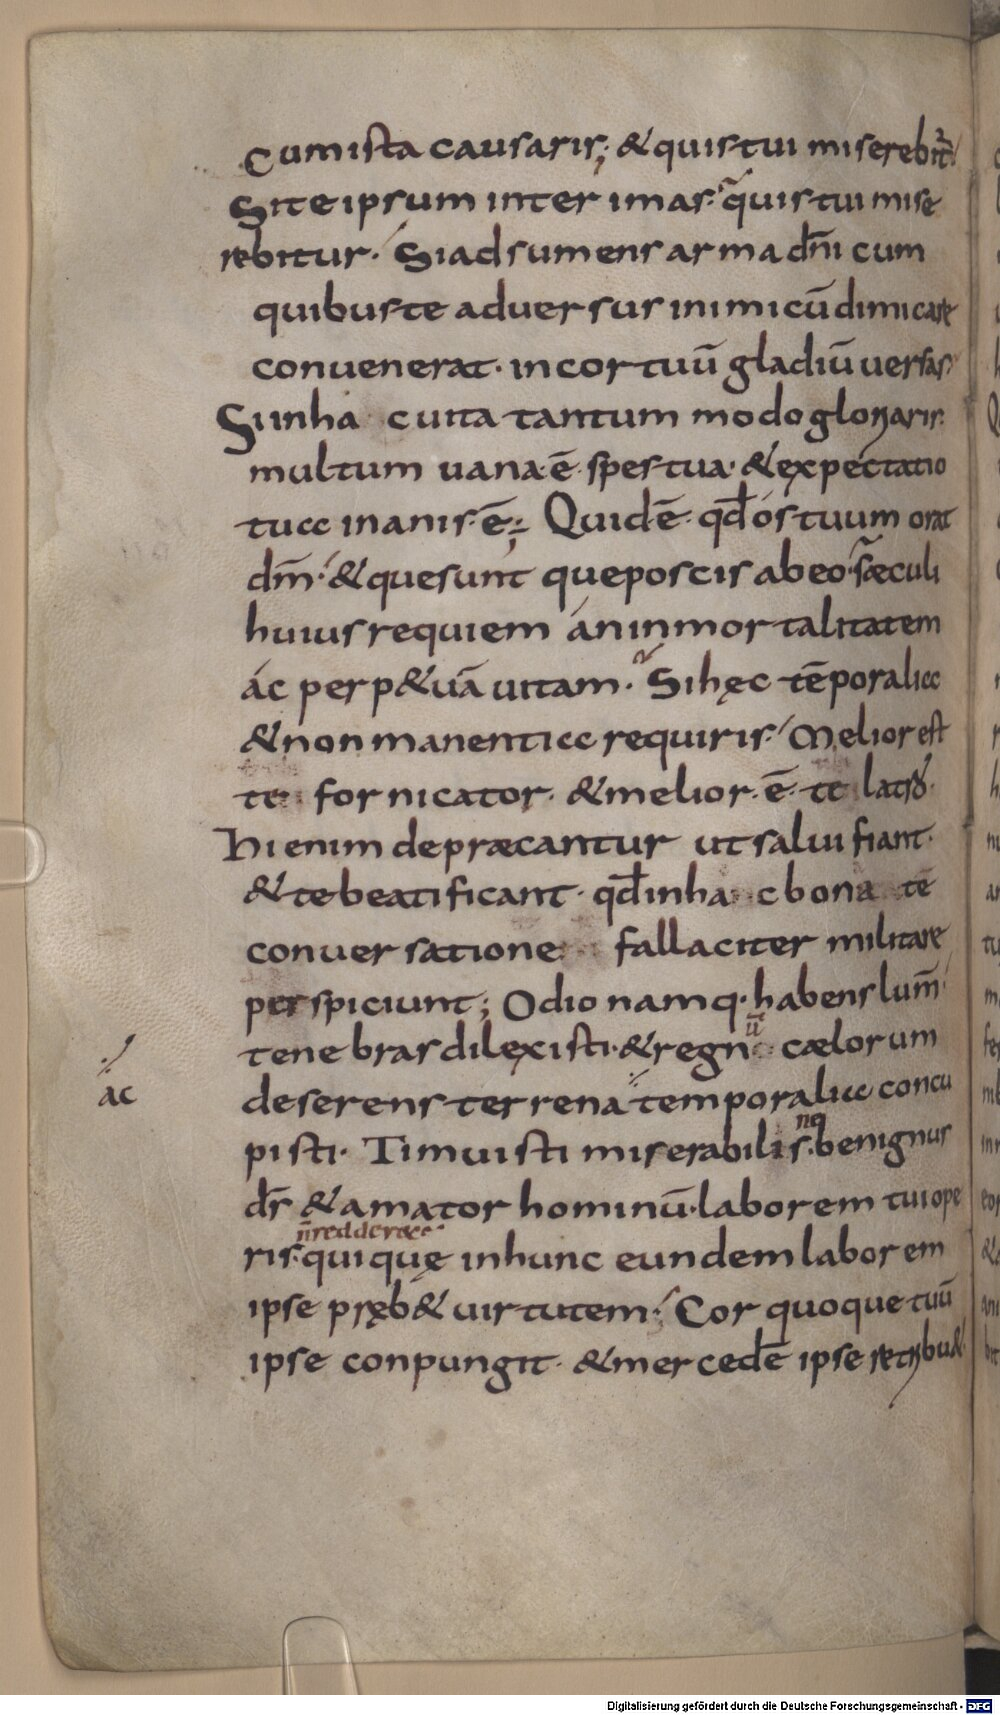 Cum ista causaris; & quis tui miserebit̄
Si te ipsum interimas. quis tui mise
rebitur. Si adsumens arma dn̄i cum
quibus te aduersus inimicū dimicare
conuenerat. in cor tuū gladiū uersas
Si in ha c uita tantum modo gloriaris.
multum uana.ē. spes tua. & expectatio
tua inanis.ē; Quid.ē. qd̄ ós tuum orat
dm̄. & que sunt que poscis ab eo. sæculi
huius requiem án inmortalitatem
ác perp&uā uitam. Si hęc tēporalia
& non manentia requiris. Melior est
te fornicator. & melior.ē. te latro.
Hi enim depræcantur ut salui fiant.
& te beatificant. qd̄ in ha c bona te
conuersatione fallaciter militare
perspiciunt; Odio namq. habens lum̄
ū
tenebras dilexisti. & regn cælorum
ac
deserens terrena temporalia concu
nq
pisti. Timuisti miserabilis. benignus
ds̄ & amator hominū. laborem tui ope
n̄ reddere
ris. qui quę in hunc eundem laborem
ipse pręb& uirtutem. Cor quoque tuū
ipse conpungit. & mercedē ipse retribu&
Digitalisierung gefördert durch die Deutsche Forschungsgemeinschaft - DFG